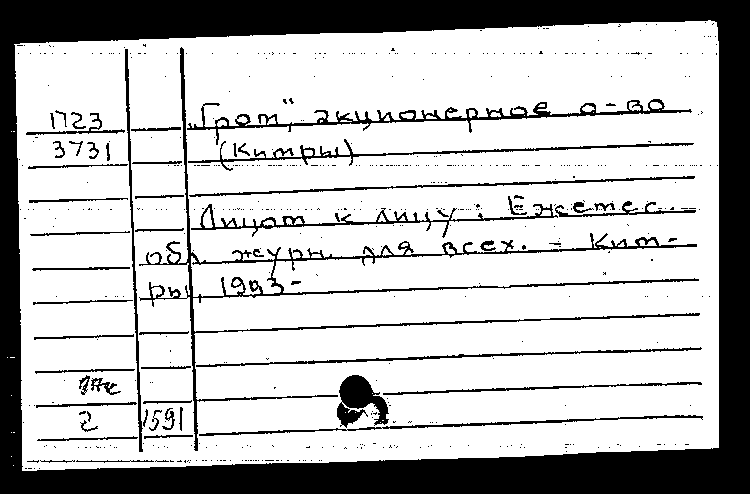 1723 „Грот“, акционерное о-во
3731 (Кимры)
Лицом к лицу : Ежемес.
обл. журн. для всех. - Ким-
ры, 1993-
2 1591